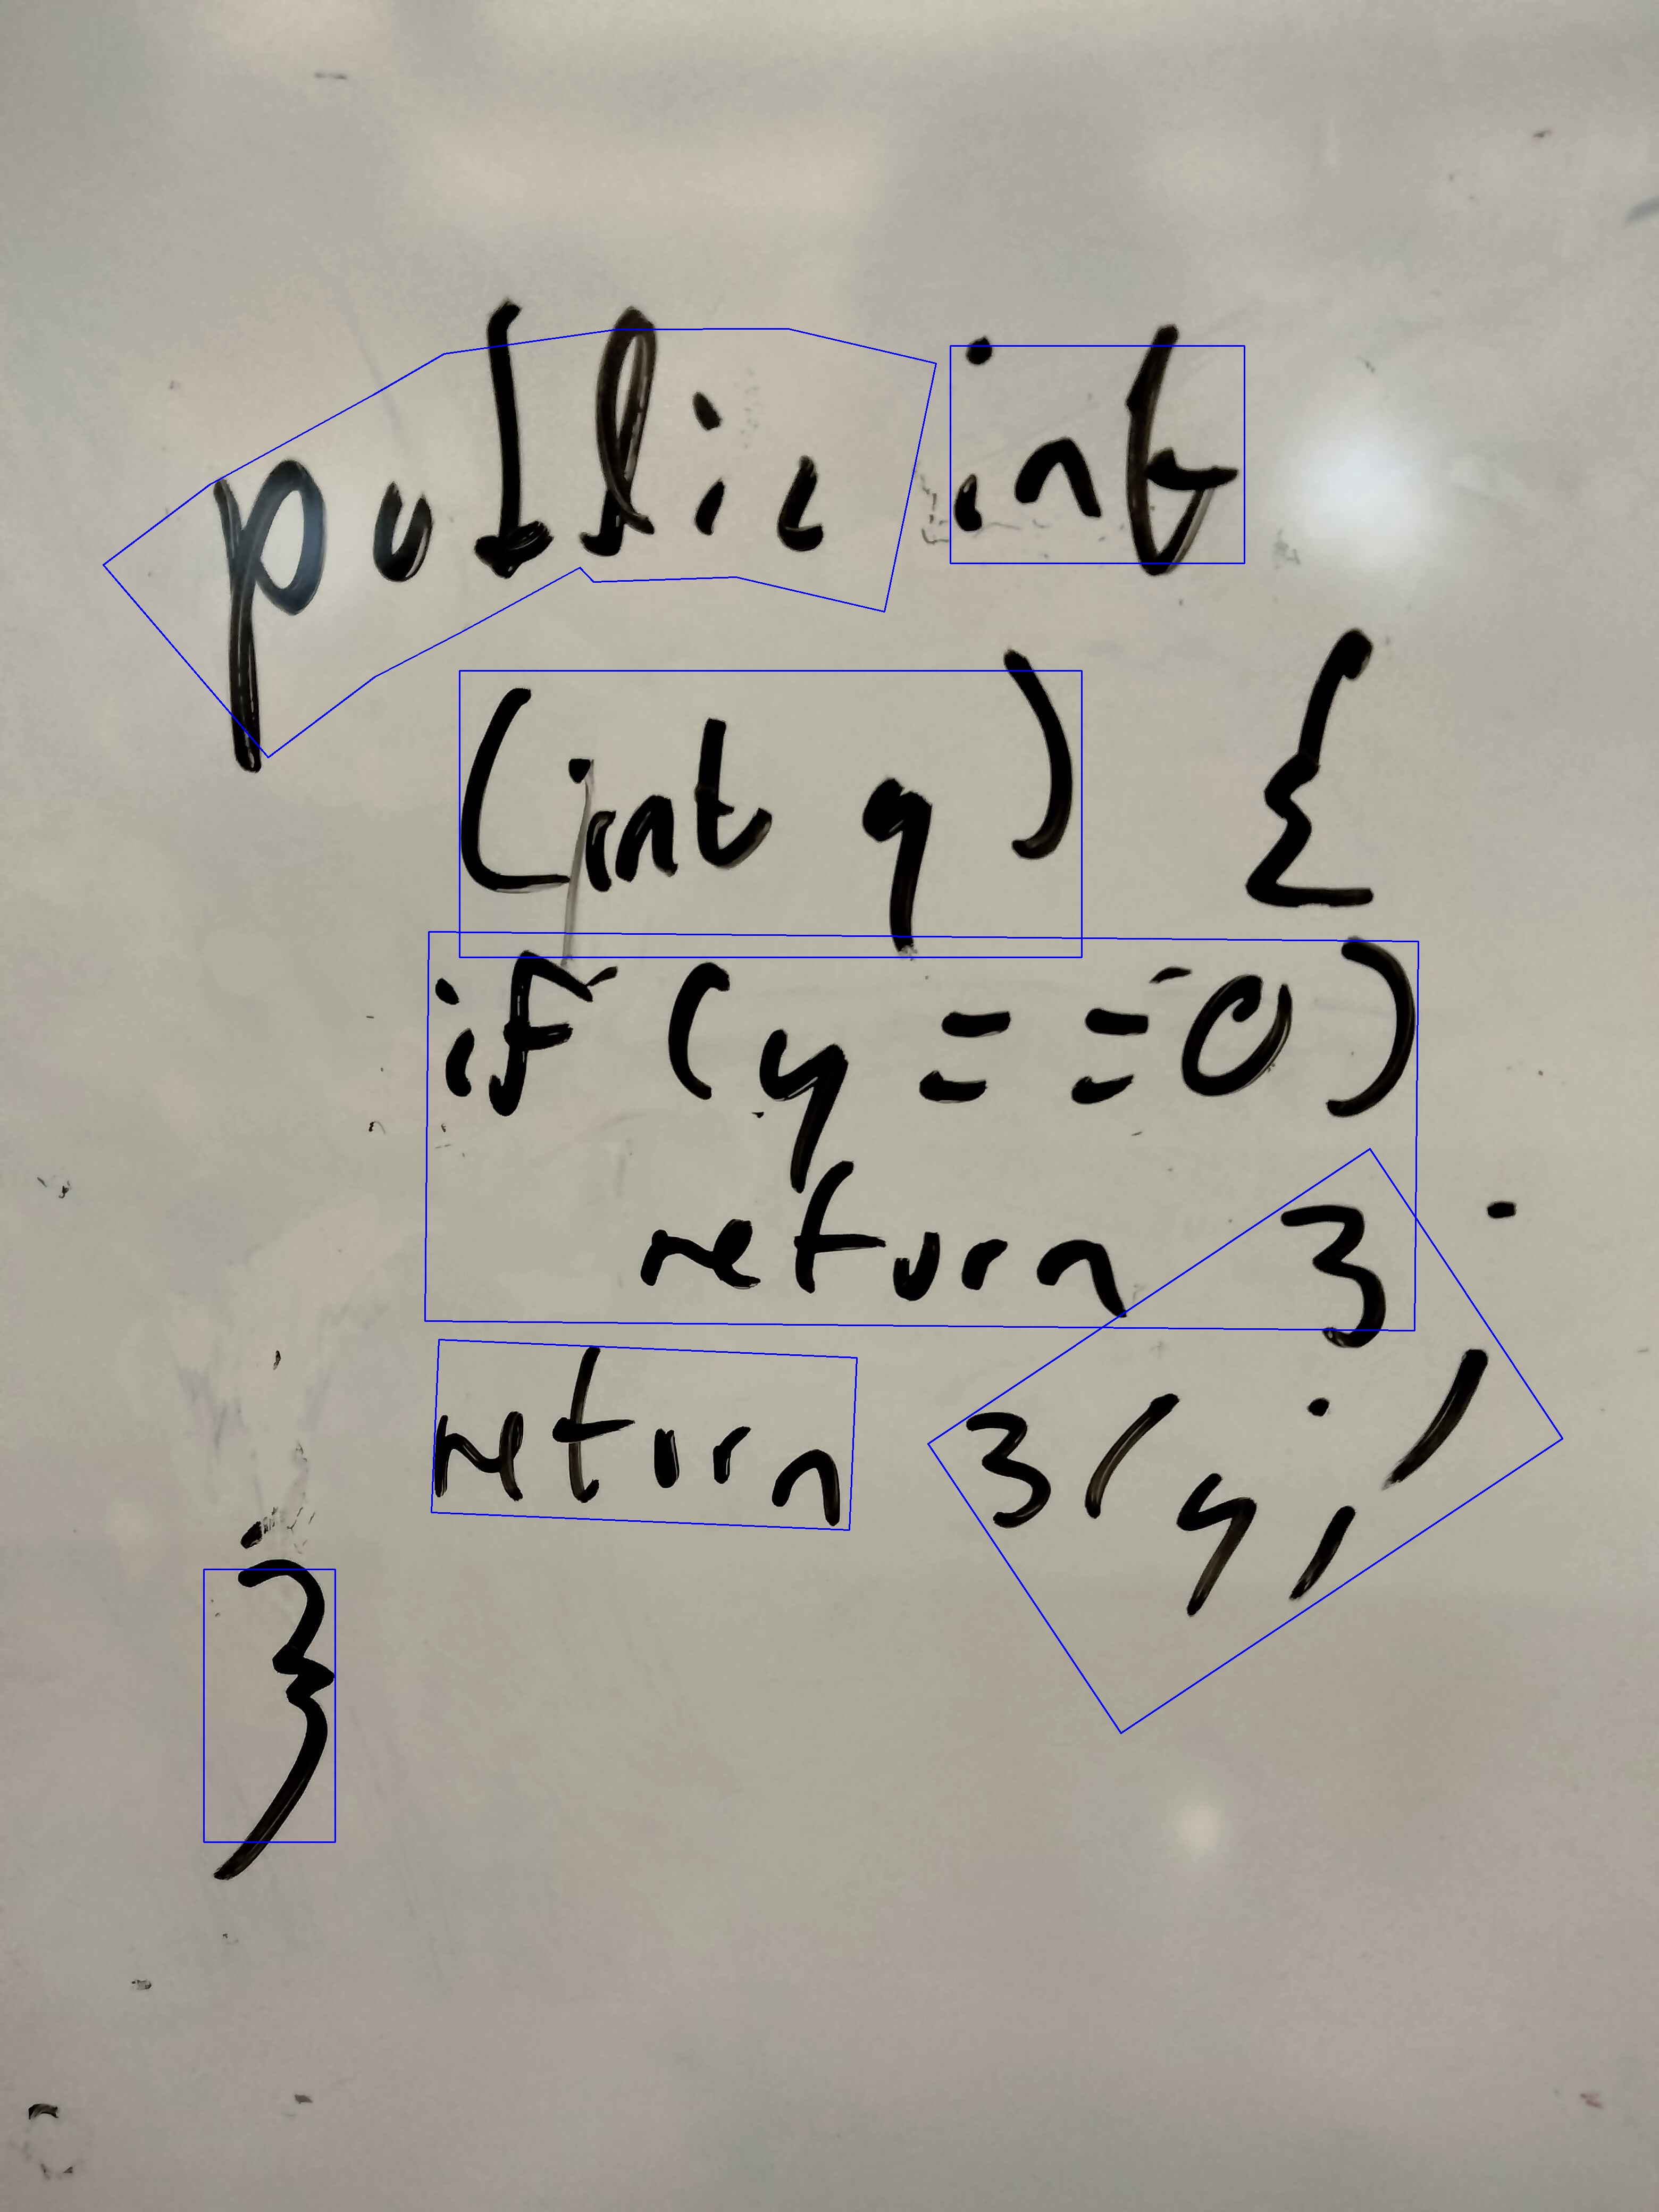 public int
(int y) {
if (y == 0)
return 3;
return 3(y);
}